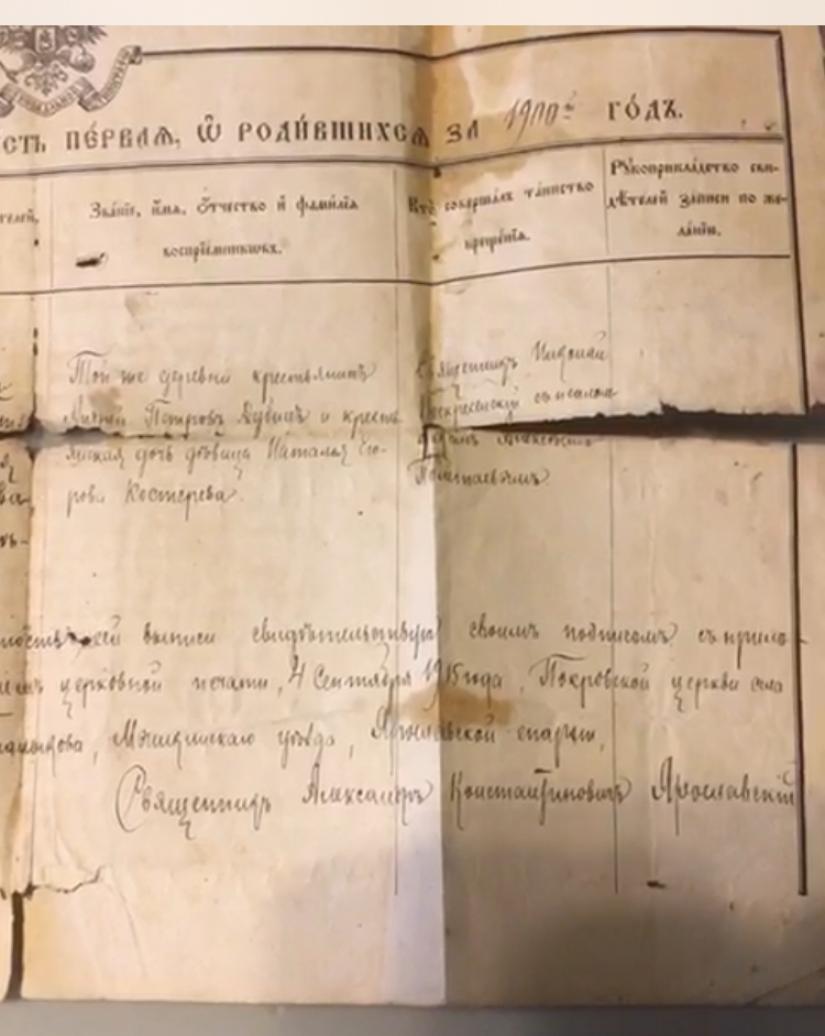 СТЬ ПЕ́РВАЯ, Ѽ РОДИ́ВШИХСѦ ЗА 1900й ГО́ДЪ.
телей,
Зва́нїе, и́мѧ, ѻ҆́тчество и҆ фами́лїѧ
воспрїе́мниковъ.
Кто̀ соверша́лъ та́инство
креще́нїѧ.
Рꙋкоприкла́дство сви-
дѣ́телей за́писи по же-
ла́нїю.
Той же деревни крестьянинъ
Петровъ и кресть
янская дочь девица Наталья Его-
рова Костерева.
Священникъ Николай
Воскресенский съ псалом
Алексеемъ
сей выписи свидѣтельствую своимъ подписомъ съ прило
церковной печати, 4 Сентября 1915 года, Покровской церкви села
Мышкинскаго уѣзда, Ярославской епархіи,
Священникъ Александръ Константиновичъ Ярославскій